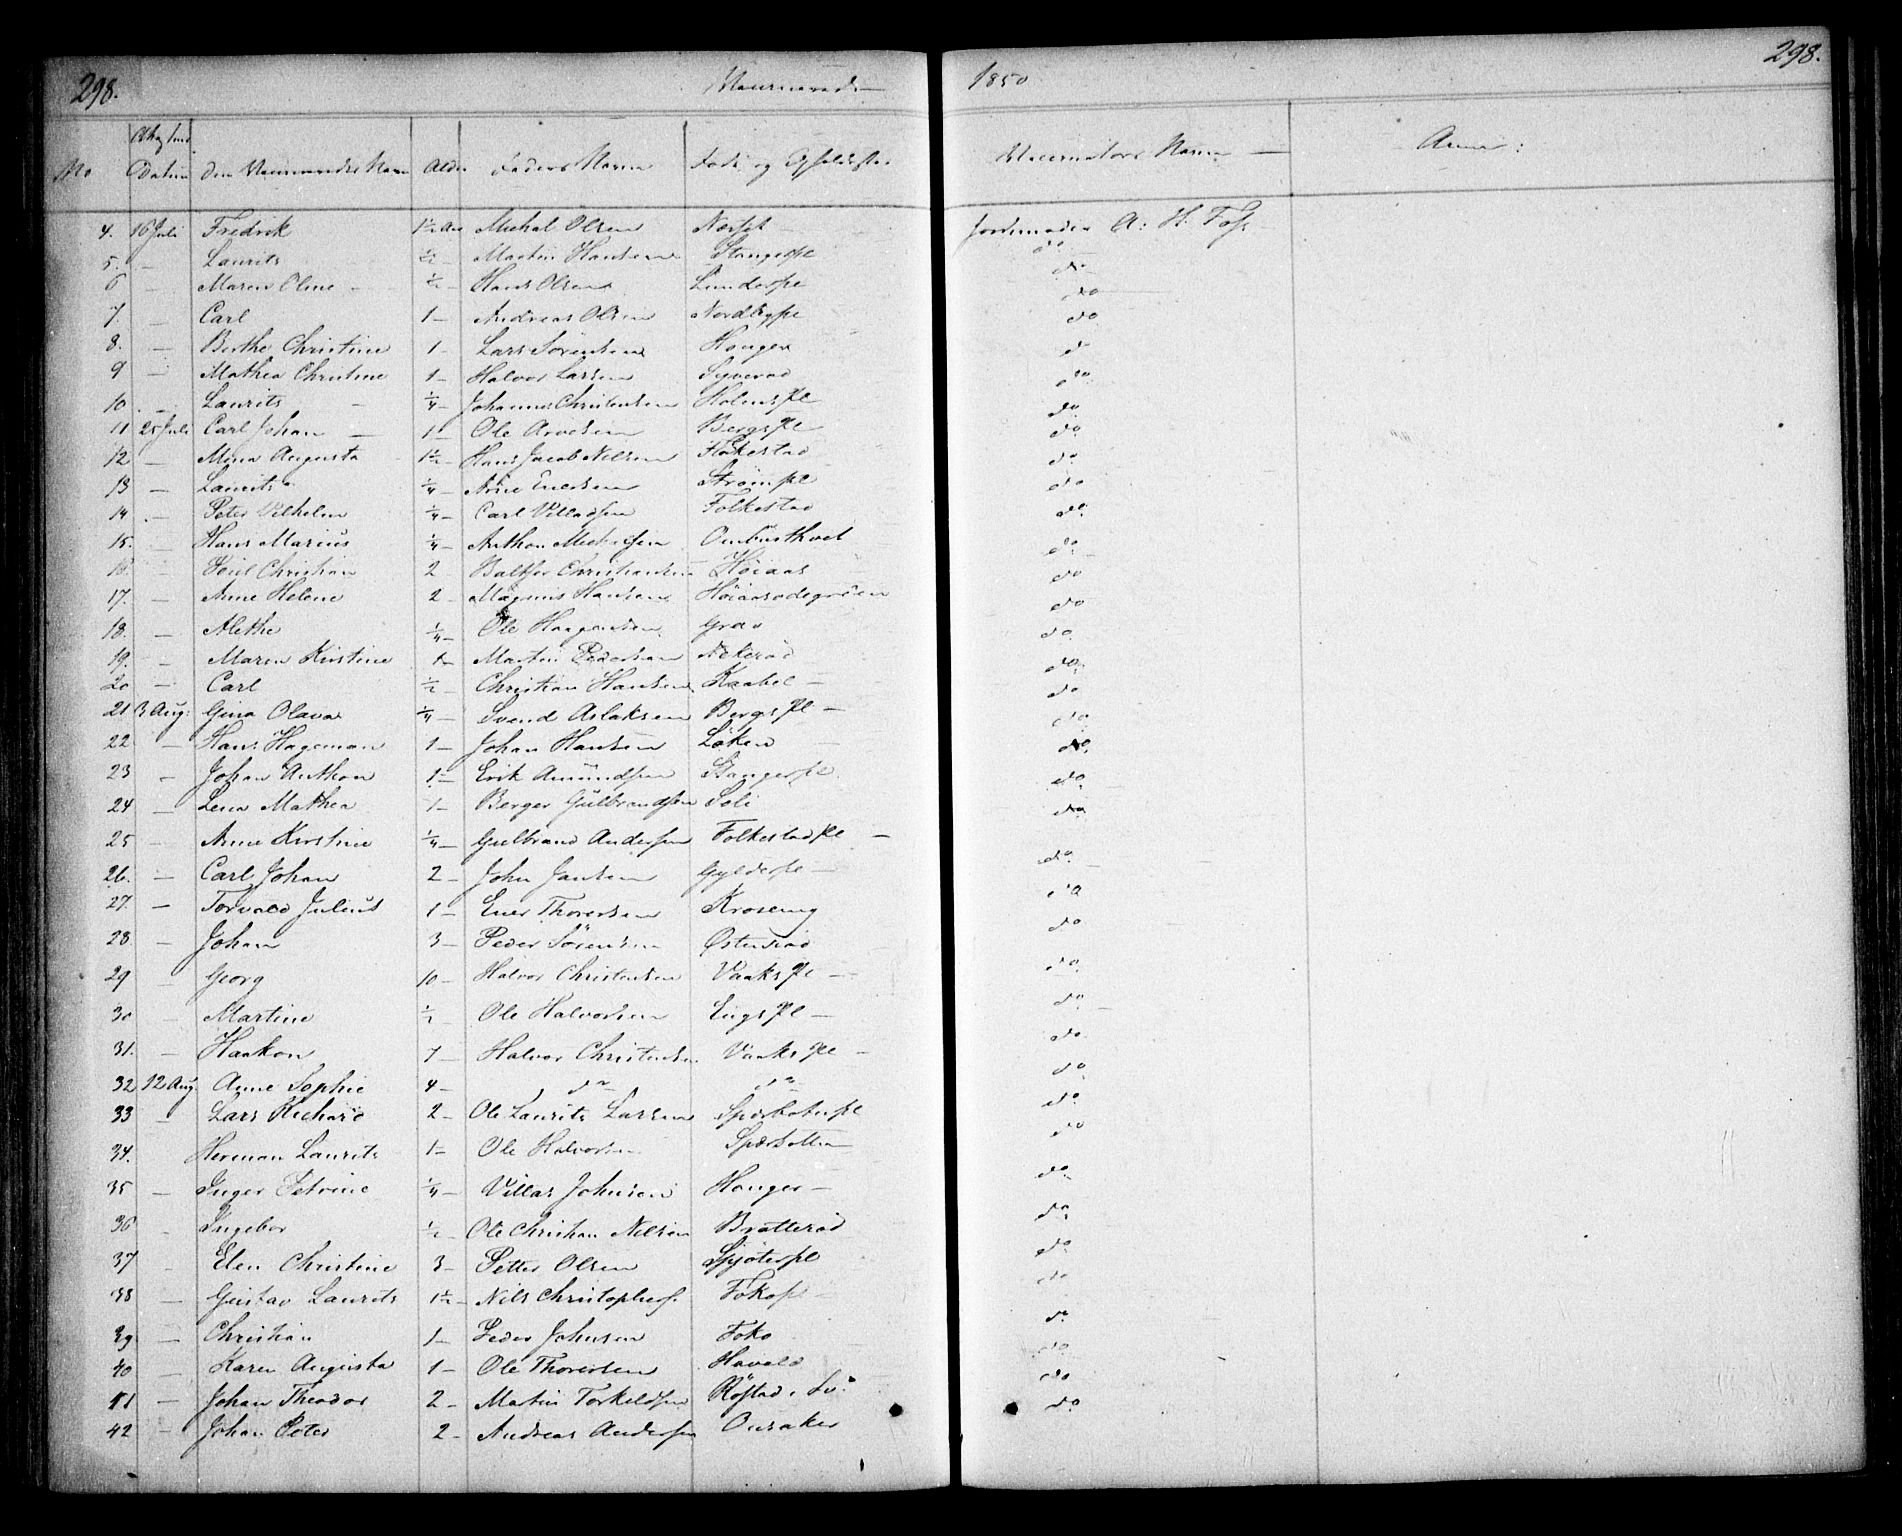 298. Vaccinerede 1850 298.
No Datum den Vaccineredes Navn Alder Faders Navn Føde og Opholdsst. Vaccinators Navn Anm:
4. 16 Juli Fredrik 1½ Aar Michal Olsen Næsset Jordemoder A. H. Foss
5. — Laurits ½ Martin Hansen Stangespl do
6 — Maren Oline ½ — Hans Olsen Lunderpl do
7. — Carl 1 — Andreas Olsen Nordbypl do
8. — Berthe Christine 1 — Lars Sørensen Honger do
9 — Mathea Christine 1 — Halvor Larsen do
10 — Laurits ¼ — Johannes Christensen Holmspl do
11 25 Juli Carl Johan — 1 — Ole Arvesen Bergspl do
12 — Mina Augusta 1½ — Hans Jacob Nilsen Folkestad do
13 — Laurits ¼ — Arne Enersen Strømpl do
14 — Peter Vilhelm ¼ — Carl Villadsen Folkestad do
15. — Hans Marius ¼ — Anthon Michelsen Ombusthvet do
16. — Christian 2 Christiansen Høiaas do
17. — Anne Helene 2 — Magnus Hansen Høiaasødegaarden do
18. — Alethe ¼ — Ole Haagensen Grav do
19. — Maren Kirstine 1 — Martin Pedersen do
20 — Carl ½ — Christian Hansen Kaabel — do
21 3 Aug: Gina Olava ¼ — Svend Aslaksen Bergspl — do
22 — Hans Hageman 1 — Johan Hansen Løken do
23 — Johan Anthon 1½ Erik Amundsen Stangespl do
24 — Lena Mathea 1 — Berger Gulbrandsen Soli do
25 — Anne Kirstine ¼ — Gulbrand Andersen Folkestadpl — do
26. — Carl Johan 2 — John Jansen Gylderpl — do
27. — Torvald Julius 1 — Ener Thoresen Kroseng do
28 — Johan 3 — Peder Sørensen Østenrød do
29 — Georg 10 — Halvor Christensen Vaakspl — do
30 — Martine ½ Ole Halvorsen Engspl — do
31. — Haakon 7 — Halvor Christensen Vaakspl — do
32 12 Aug. Anne Sophie 4 — do do do
33 — Lars Richard 2 — Ole Laurits Larsen do
34. Herman Laurits 1 — Ole Halvorsen do
35 — Inger Petrine ¼ — Villas Johnsen Honger — do
36 — Ingebor ½ — Ole Christian Nilsen Bratterød do
37 — Elen Christine 3 — Petter Olsen Spjøterpl do
38 — Gustav Laurits 1½ — Nils Christophers. Fokopl — do
39 — Christian 1 — Peder Johnsen Foko do
40 — Karen Augusta 1 — Ole Thoresen Havold do
41 — Johan Theodor 2 — Martin Torkeldsen do
42 — Johan Peter 2 — Andreas Andersen Onsaker do